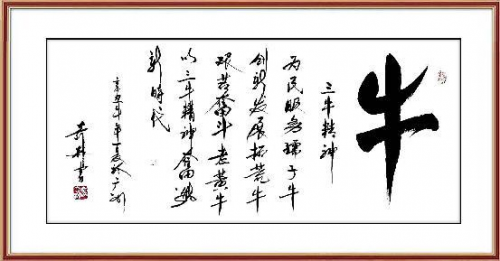 牛
三牛精神
为民服务孺子牛
创新发展拓荒牛
艰苦奋斗老黄牛
以三牛精神奋
新時代
辛丑年
广州